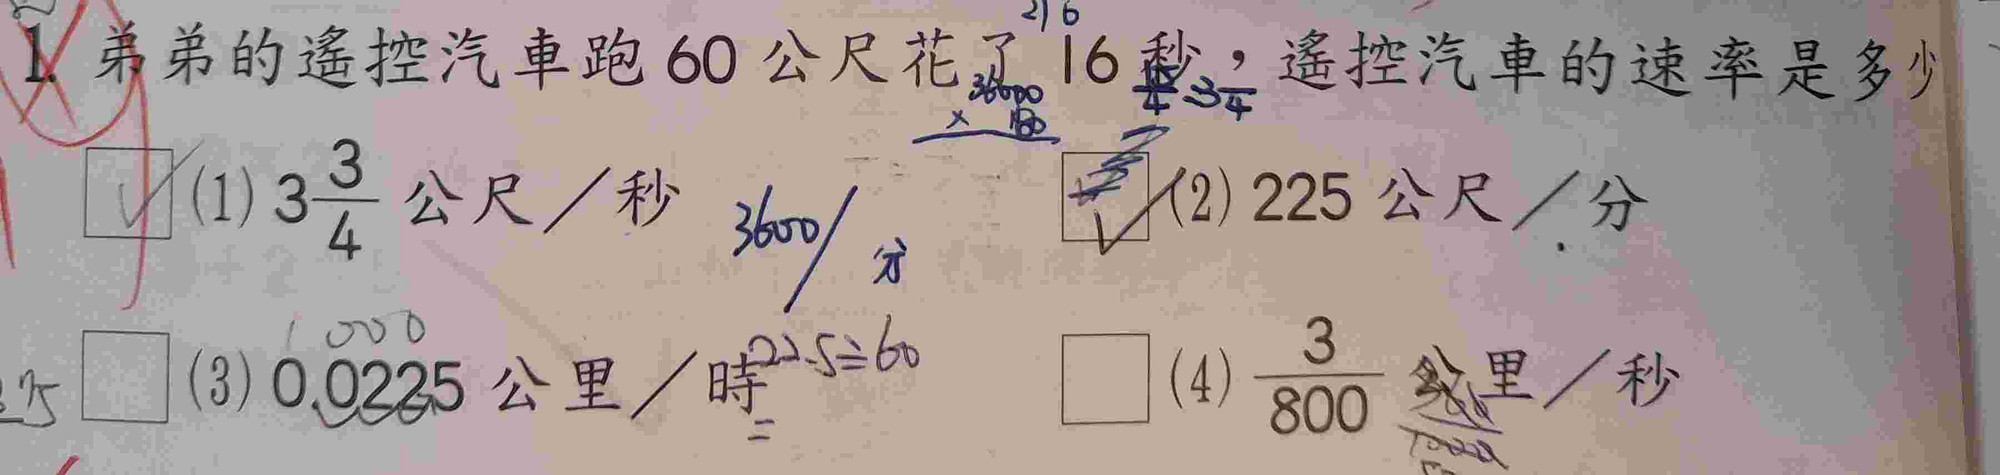 2) 6
1. 弟弟的遙控汽車跑 60 公尺花了 16 秒，遙控汽車的速率是多少
36600
× 60
3 3/4
(1) 3 3/4 公尺／秒
3600/分
(2) 225 公尺／分
1000
(3) 0.0225 公里／時
22.5÷60
=
(4) 3/800 公里／秒